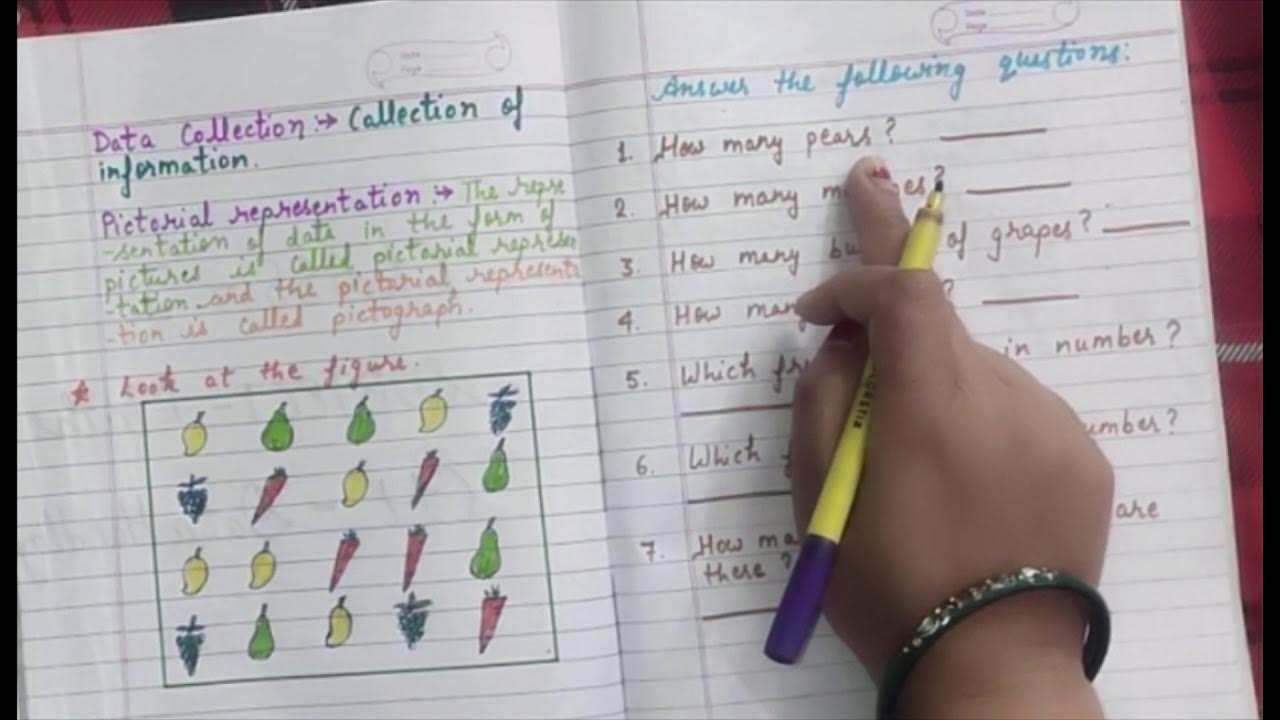 Data Collection :→ Collection of
information.
Pictorial representation :→ The repre
-sentation of data in the form of
pictures is called pictorial represen
-tation and the pictorial representa
-tion is called pictograph.
★ Look at the figure.
Answer the following questions:
1. How many pears ?
2. How many ?
3. How many of grapes ?
4. How many ?
5. Which in number ?
6. Which number ?
7. How are
there ?